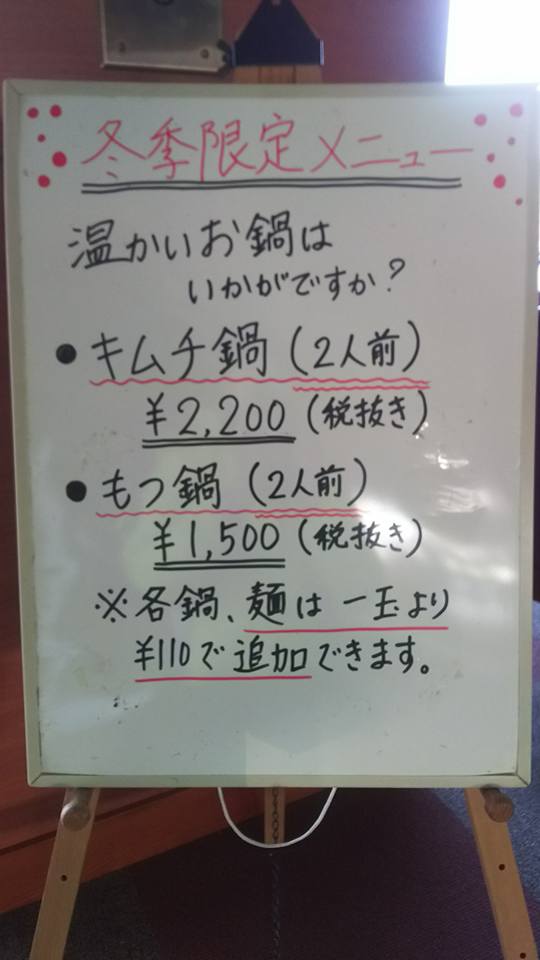 冬季限定メニュー
温かいお鍋は
いかがですか?
●キムチ鍋(2人前)
¥2,200(税抜き)
●もつ鍋(2人前)
¥1,500(税抜き)
※各鍋、麺は一玉より
¥110で追加できます。